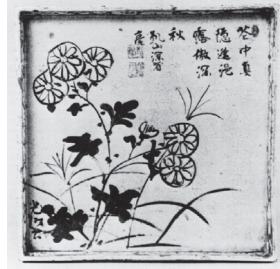 花中真
隱逸浥
露傲深
秋
乾山深省